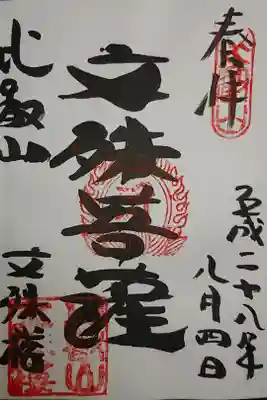 奉拝
平成二十八年
八月四日
文殊菩薩
比叡山
文殊楼